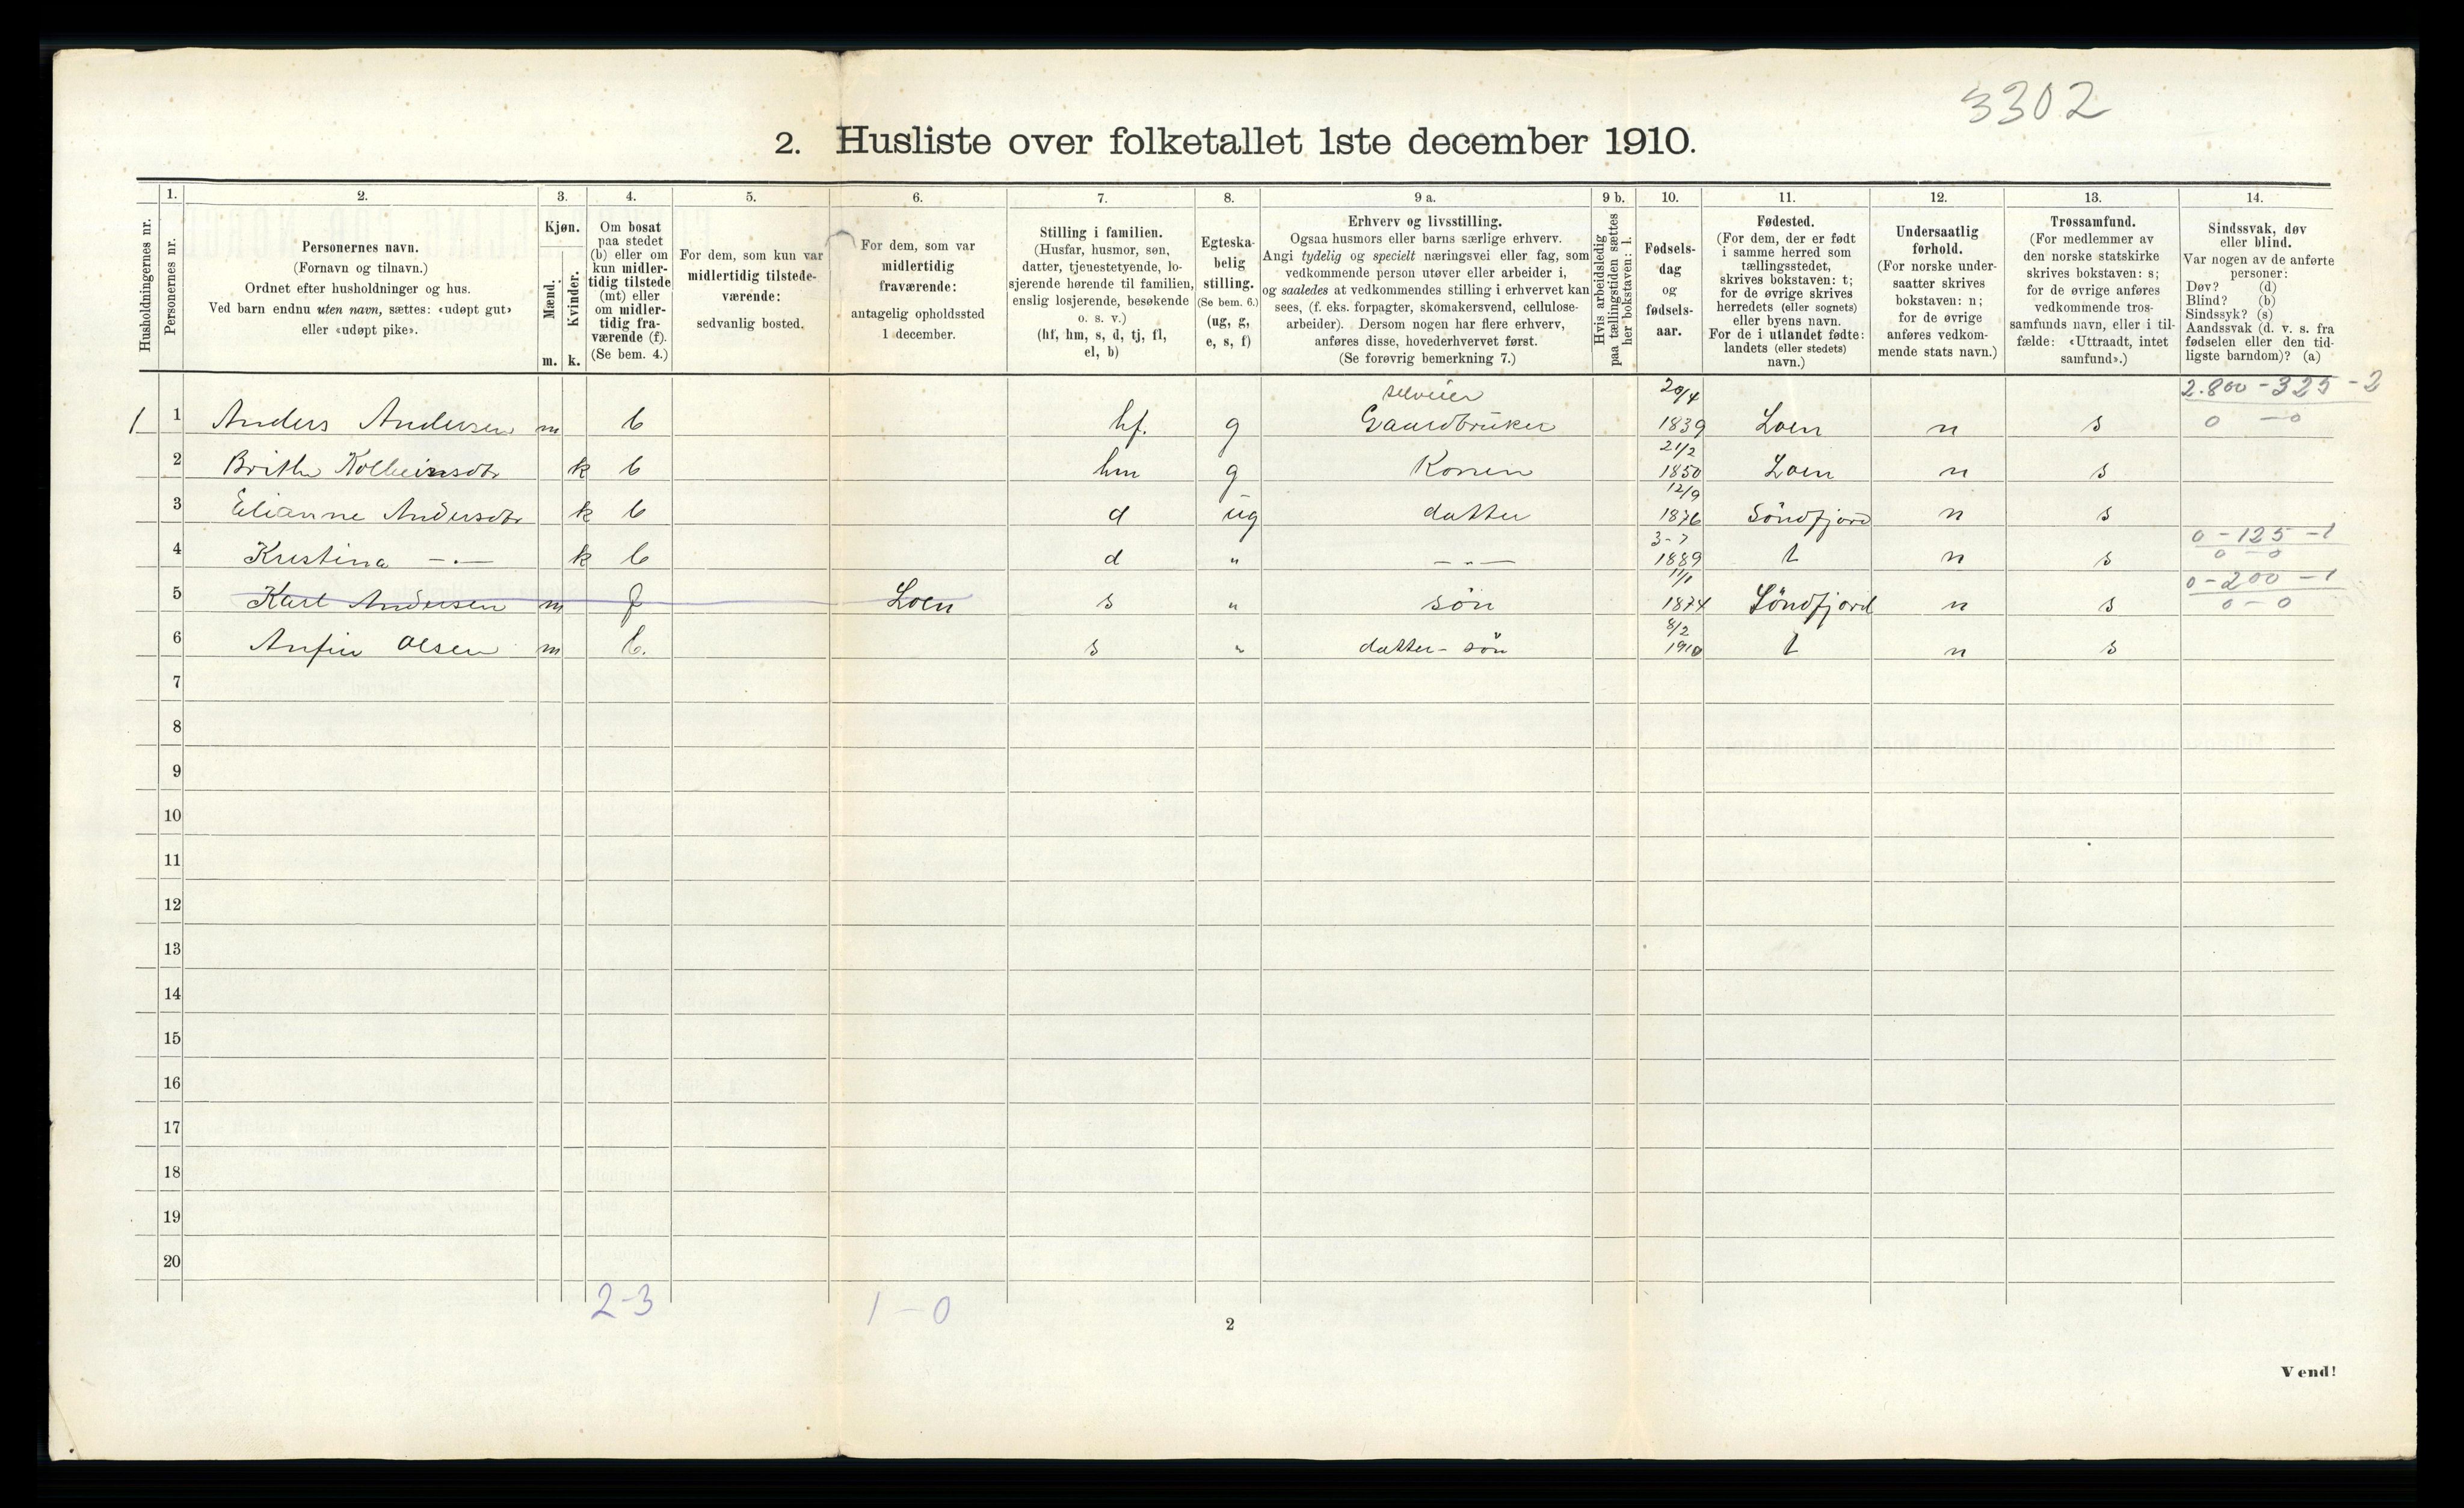 3302
2. Husliste over folketallet 1ste december 1910.
Husholdningernes nr.
1.
Personernes nr.
2.
Personernes navn.
(Fornavn og tilnavn.)
Ordnet efter husholdninger og hus.
Ved barn endnu uten navn, sættes: «udøpt gut»
eller «udøpt pike».
3.
Kjøn.
Mænd.
Kvinder.
m. k.
4.
Om bosat
paa stedet
(b) eller om
kun midler-
tidig tilstede
(mt) eller
om midler-
tidig fra-
værende (f).
(Se bem. 4.)
5.
For dem, som kun var
midlertidig tilstede-
værende:
sedvanlig bosted.
6.
For dem, som var
midlertidig
fraværende:
antagelig opholdssted
1 december.
7.
Stilling i familien.
(Husfar, husmor, søn,
datter, tjenestetyende, lo-
sjerende hørende til familien,
enslig losjerende, besøkende
o. s. v.)
(hf, hm, s, d, tj, fl,
el, b)
8.
Egteska-
belig
stilling.
(Se bem. 6.)
(ug, g,
e, s, f)
9 a.
Erhverv og livsstilling.
Ogsaa husmors eller barns særlige erhverv.
Angi tydelig og specielt næringsvei eller fag, som
vedkommende person utøver eller arbeider i,
og saaledes at vedkommendes stilling i erhvervet kan
sees, (f. eks. forpagter, skomakersvend, cellulose-
arbeider). Dersom nogen har flere erhverv,
anføres disse, hovederhvervet først.
(Se forøvrig bemerkning 7.)
9 b.
Hvis arbeidsledig
paa tællingstiden sættes
her bokstaven: l.
10.
Fødsels-
dag
og
fødsels-
aar.
11.
Fødested.
(For dem, der er født
i samme herred som
tællingsstedet,
skrives bokstaven: t;
for de øvrige skrives
herredets (eller sognets)
eller byens navn.
For de i utlandet fødte:
landets (eller stedets)
navn.)
12.
Undersaatlig
forhold.
(For norske under-
saatter skrives
bokstaven: n;
for de øvrige
anføres vedkom-
mende stats navn.)
13.
Trossamfund.
(For medlemmer av
den norske statskirke
skrives bokstaven: s;
for de øvrige anføres
vedkommende tros-
samfunds navn, eller i til-
fælde: «Uttraadt, intet
samfund».)
14.
Sindssvak, døv
eller blind.
Var nogen av de anførte
personer:
Døv? (d)
Blind? (b)
Sindssyk? (s)
Aandssvak (d. v. s. fra
fødselen eller den tid-
ligste barndom)? (a)
selveier 20/4 2.800 - 325 - 2
1 1 Anders Andersen m b hf. g Gaardbruker 1839 Loen n s 0 - 0
21/2
2 Brithe Kolbeinsdtr k b hm g Konen 1850 Loen n s
12/9
3 Elianne Andersdtr k b d ug datter 1876 Söndfjord n s
3-7 0 - 125 - 1
4 Kristina -·- k b d " -"- 1889 t n s 0 - 0
11/1 0 - 200 - 1
5 Karl Andersen m f Loen s " sön 1874 Söndfjord n s 0 - 0
8/2
6 Anfin Olsen m b. s " datter-sön 1910 t n s
7
8
9
10
11
12
13
14
15
16
17
18
19
20
2-3 1-0
2
Vend!